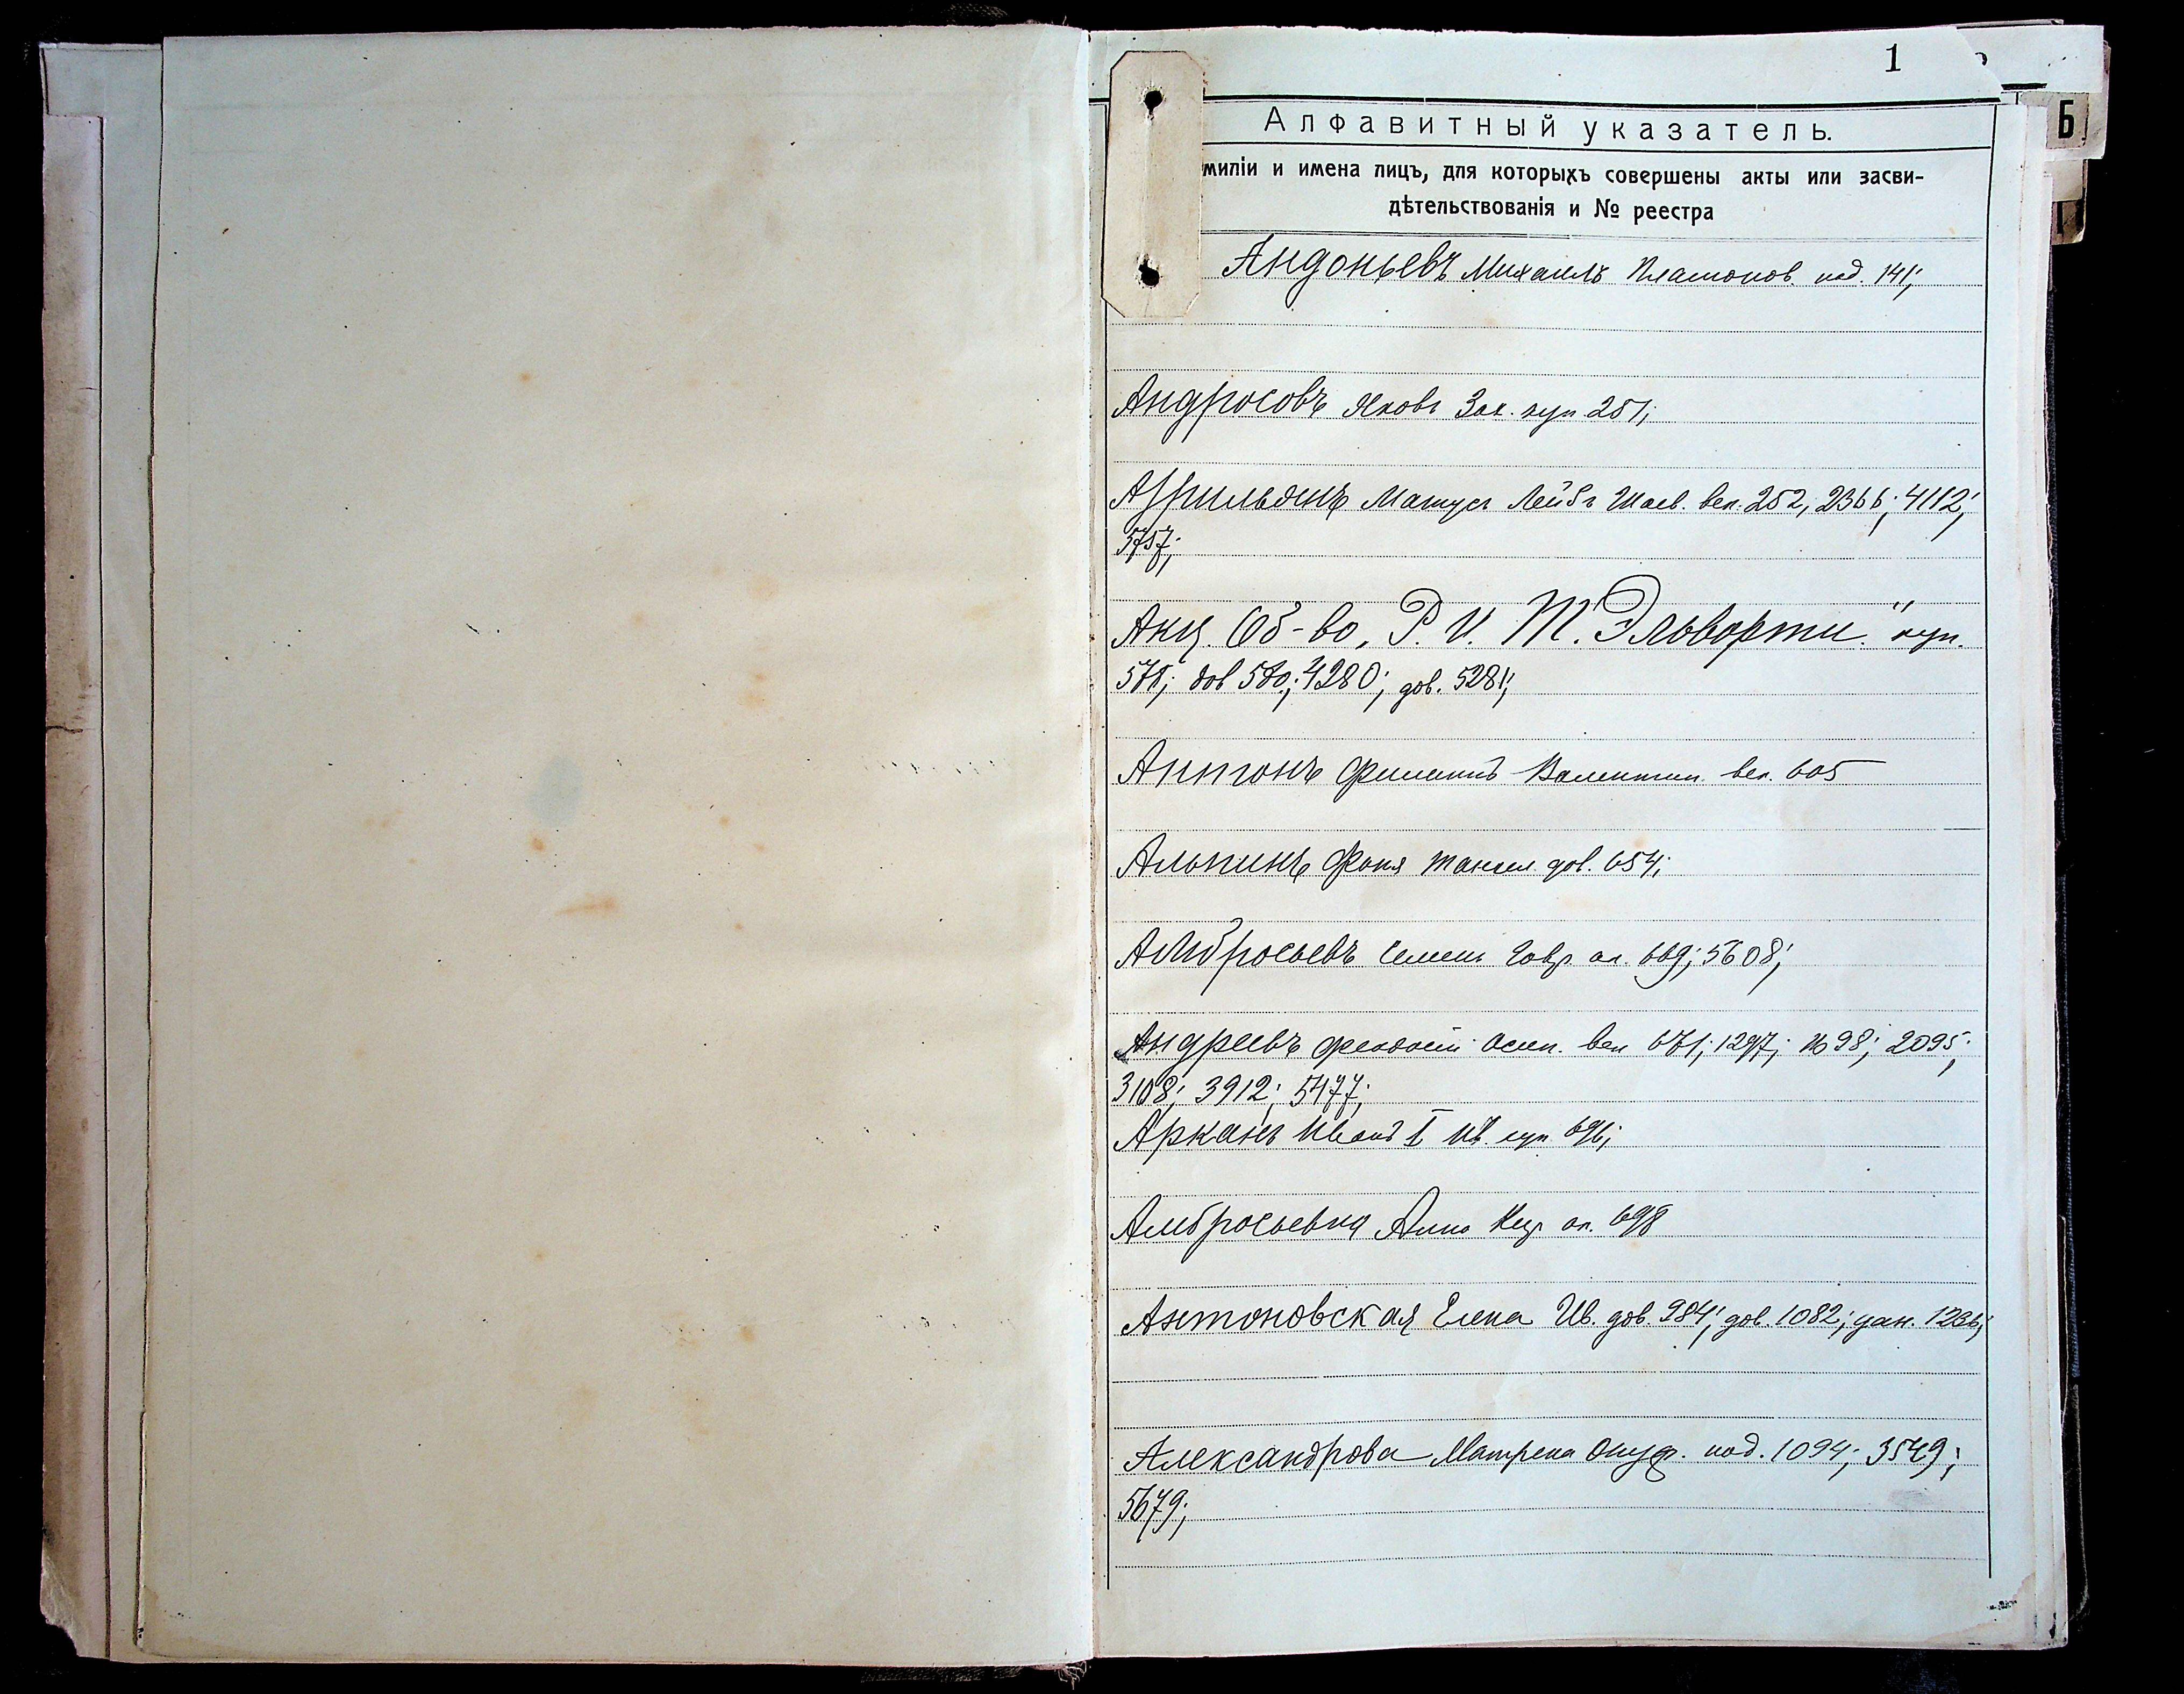 1
Б
Алфавитный указатель.
милiи и имена лицъ, для которыхъ совершены акты или засви-
дѣтельствованiя и № реестра
Андоньевъ Михаилъ Платонов. под. 141;
Андросовъ Яковъ Зах. куп 251;
Матус Лейбъ вел. 252, 2366; 4112;
5757;
Акц. Об-во „Р. и Т. Эльворти" куп.
дов 580; 4280; дов. 5281;
Антонъ Филиппъ Валентин. вел. 605
Альпинъ Фаня дов. 654;
Амбросьевъ Семенъ Гавр. ал. 669; 5608;
Андреевъ Феодосий Осип. вел 671; 1297; 1698; 2095;
3108; 3912; 5477;
Арканъ Иванъ I Ив. куп. 696;
Амбросьевна Анна ал. 698
Антоновская Елена Ив. дов. 984; дов. 1082; дан. 1236;
Александрова Матрена Онуф. под. 1094; 3549;
5679;